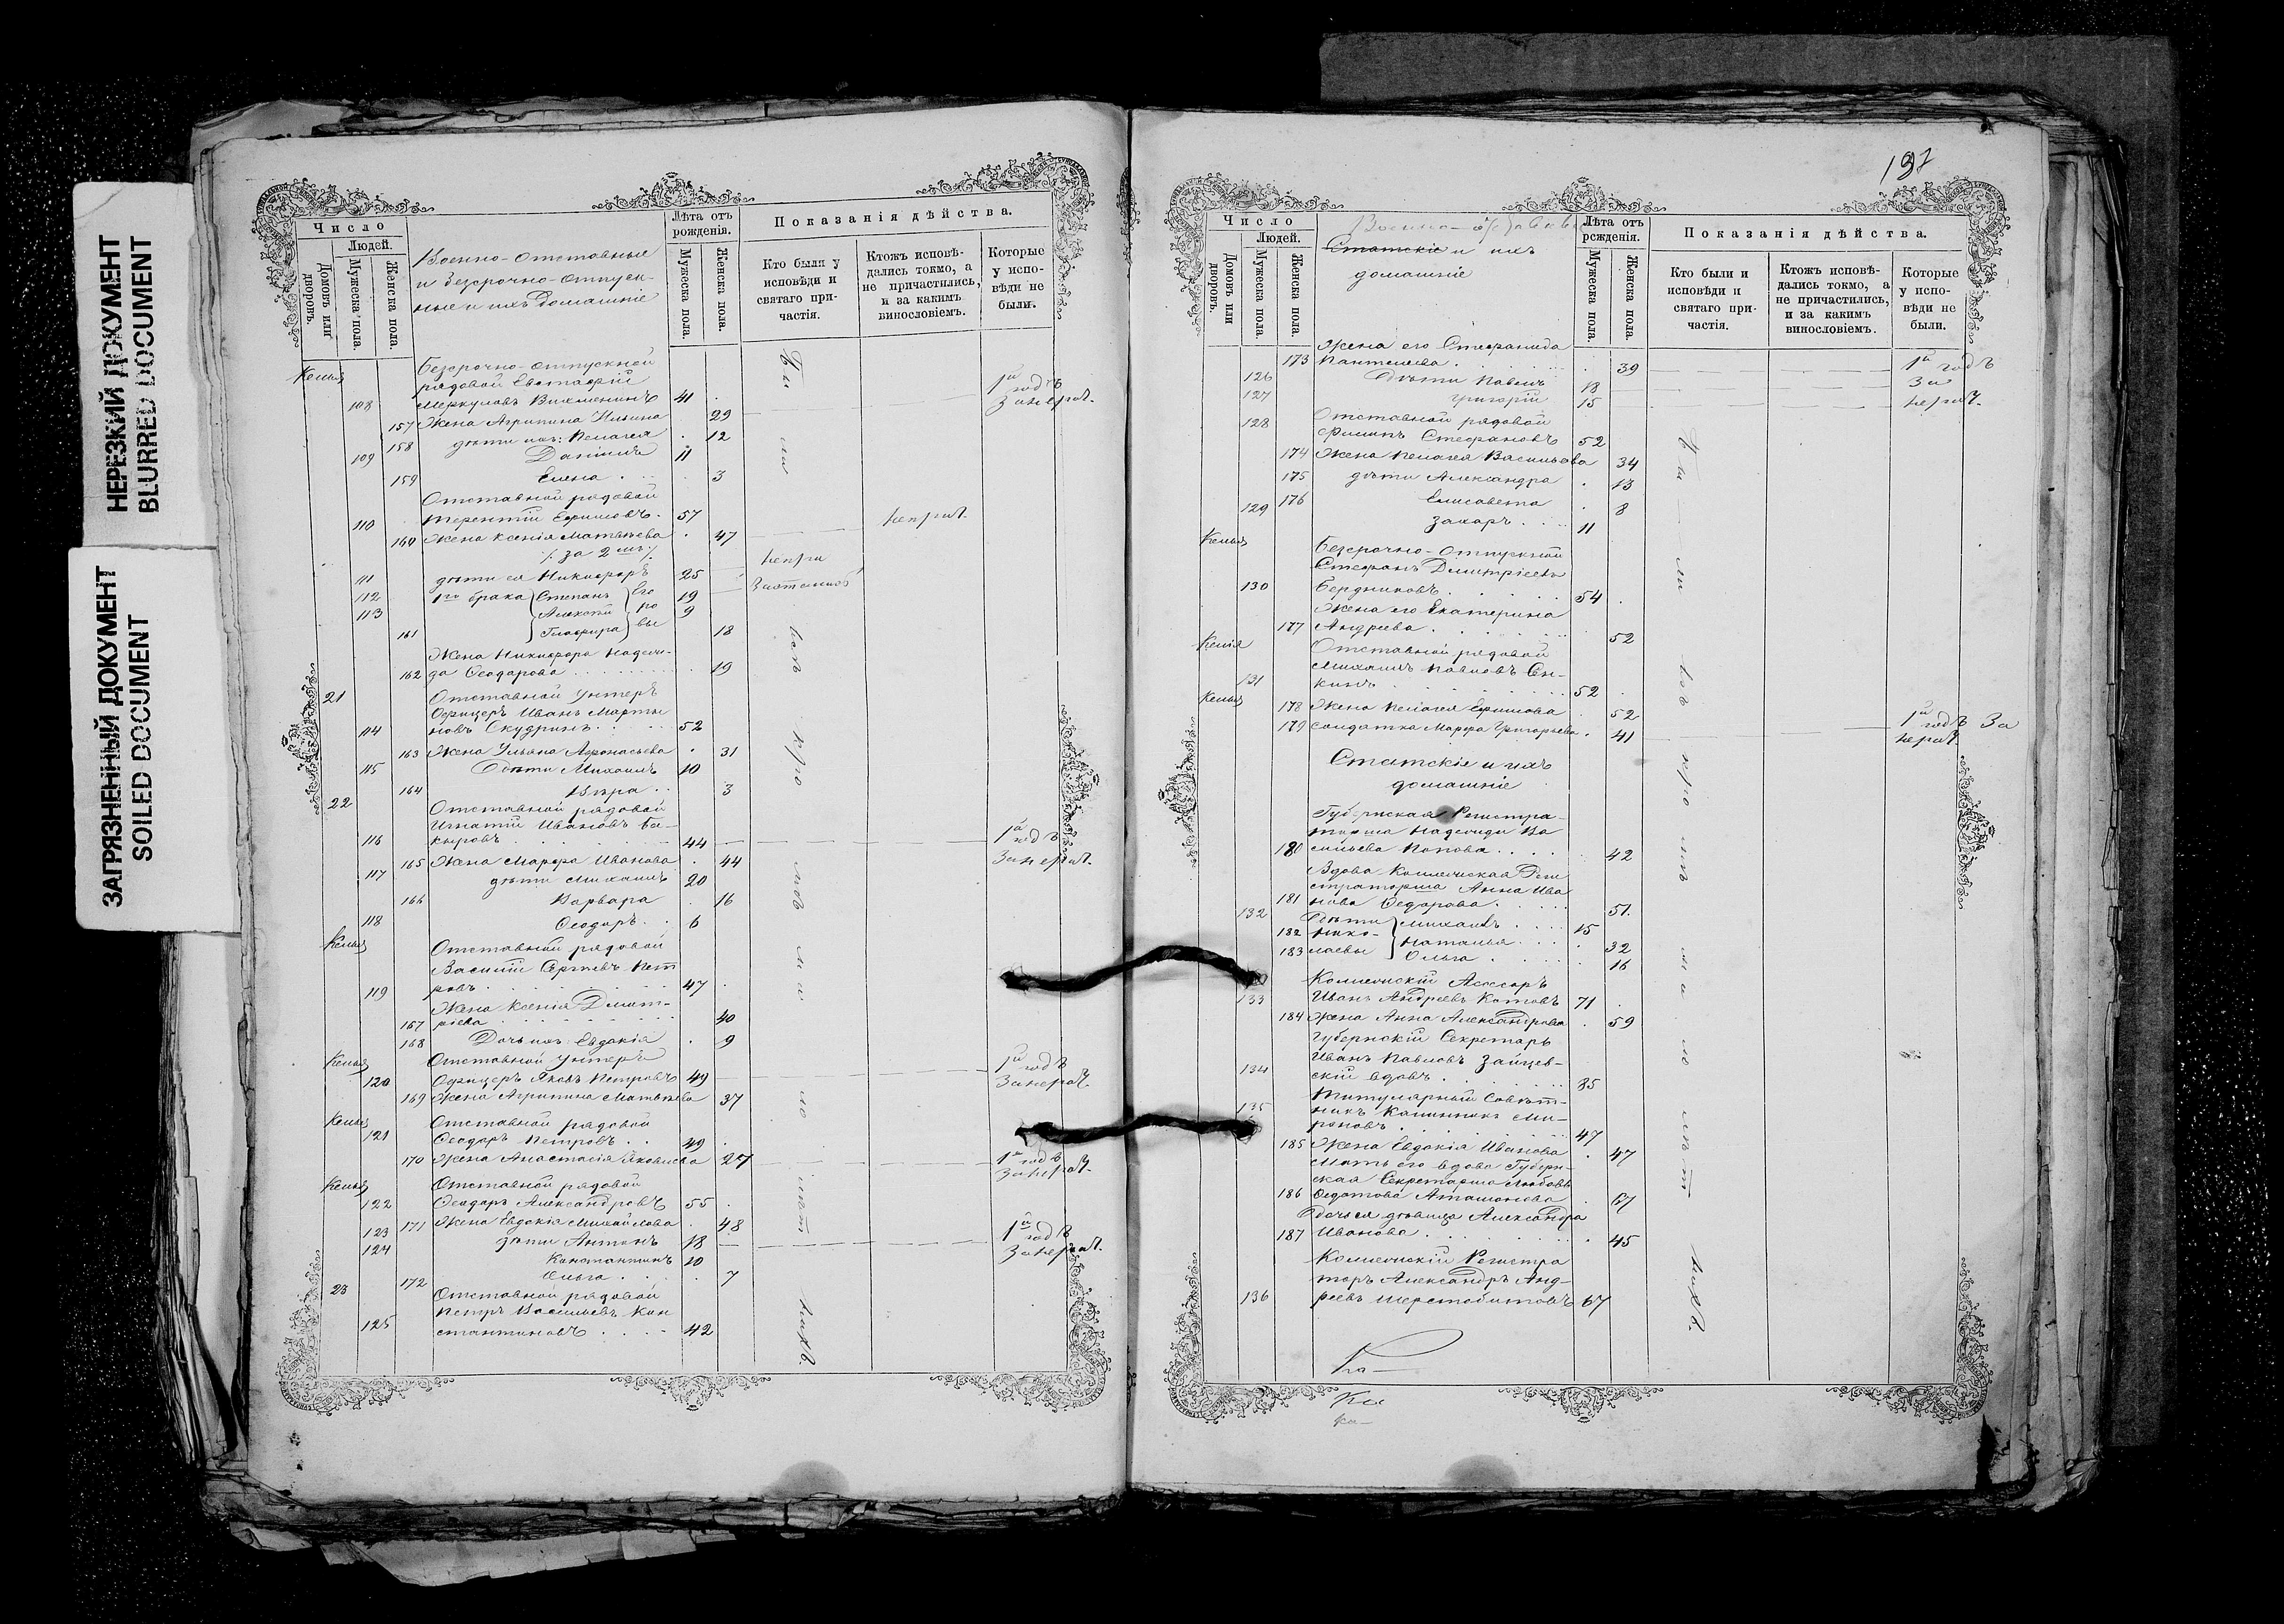 НЕРЕЗКИЙ ДОКУМЕНТ
BLURRED DOCUMENT
ЗАГРЯЗНЕННЫЙ ДОКУМЕНТ
SOILED DOCUMENT
Число
Людей.
Домовъ или дворовъ.
Мужеска пола.
Женска пола.
Военно-отставные
и безсрочно-отпуск-
ные и ихъ домашніе
Лѣта отъ рожденія.
Мужеска пола.
Женска пола.
Показанія дѣйства.
Кто были у исповѣди и святаго причастія.
Ктожъ исповѣдались токмо, а не причастились, и за какимъ винословіемъ.
Которые у исповѣди не были.
Безсрочно-отпускной
рядовой Евстафій
108 Меркуловъ 41
1й годъ
157 Жена Агрипина Ильина 29
158 дѣти ихъ: Пелагея 12
109 Даніилъ 11
159 Елена 3
Отставной рядовой
110 Терентій Ефимовъ 57
160 Жена Ксенія Матвѣева 47
/. за 2мъ /.
111 дѣти ея Никифоръ 25
112 1го брака Степанъ 19
113 Алексѣй 9
161 Глафира 18
Его ро вы
Жена Никифора Надеж-
162 да Ѳеодорова 19
21 Отставной Унтеръ
Офицеръ Иванъ Марты
114 новъ Скудринъ 52
163 Жена Ульяна Афонасьева 31
115 Дѣти Михаилъ 10
164 Вѣра 3
22 Отставной рядовой
Игнатій Ивановъ Ба-
116 кыровъ 44
1й годъ
165 Жена Марфа Иванова 44
117 дѣти Михаилъ 20
166 Варвара 16
118 Ѳеодоръ 6
Отставной рядовой
Василій Сергѣевъ Пет
119 ровъ 47
Жена Ксенія Дмит-
167 ріева 40
168 Дочь ихъ Евдокія 9
Отставной Унтеръ
120 Офицеръ Яковъ Петровъ 49
1й годъ
169 Жена Агрипина Матвѣева 37
Отставной рядовой
121 Ѳеодоръ Петровъ 49
170 Жена Анастасія Яковлева 27
1й годъ
Отставной рядовой
122 Ѳеодоръ Александровъ 55
171 Жена Евдокія Михайлова 48
123 дѣти Антонъ 18
1й годъ
124 Константинъ 10
172 Ольга 7
23 Отставной рядовой
Петръ Васильевъ Кон
125 стантиновъ 42
197
Число
Людей.
Домовъ или дворовъ.
Мужеска пола.
Женска пола.
Статскіе и ихъ
домашніе
Лѣта отъ рожденія.
Мужеска пола.
Женска пола.
Показанія дѣйства.
Кто были и исповѣди и святаго причастія.
Ктожъ исповѣдались токмо, а не причастились, и за какимъ винословіемъ.
Которые у исповѣди не были.
Жена его Стефанида
173 Пантелеева 39
1й годъ
126 Дѣти Павелъ 18
За
127 Григорій 15
Отставной рядовой
128 Филипъ Стефановъ 52
174 Жена Пелагея Васильева 34
175 дѣти Александра 13
176 Елисавета 8
129 Захаръ 11
Безсрочно-отпускной
Стефанъ Дмитріевъ
130 Бердниковъ 54
Жена его Екатерина
177 Андреева 52
Отставной рядовой
Михаилъ Павловъ Ен-
131 кинъ 52
178 Жена Пелагея Ефимова 52
179 Солдатка Марфа Григорьева 41
1й годъ За
Статскіе и ихъ
домашніе
Губернская Регистра-
торша Надежда Ва
180 сильева Попова 42
Вдова Коллежская Реги
страторша Анна Ива
181 нова Ѳедорова 51
132 Дѣти Михаилъ 15
182 Нико- Наталья 32
183 лаевы Ольга 16
Коллежскій Асессоръ
133 Иванъ Андреевъ Котовъ 71
184 Жена Анна Александрова 59
Губернскій Секретарь
Иванъ Павловъ Зайцев-
134 скій вдовъ 85
Титулярный Совѣт-
135 никъ Капитонъ Ми-
роновъ 47
185 Жена Евдокія Иванова 47
Мать его вдова Губерн-
ская Секретарша Любовь
186 Ѳедотова Аташонова 67
Дочь ея дѣвица Александра
187 Иванова 45
Коллежскій Регистра
торъ Александръ Анд-
136 реевъ Шерстобитовъ 67
Ка